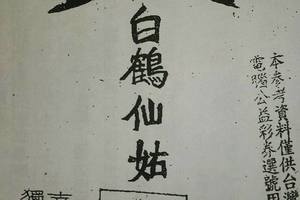 本參考資料僅供台灣
電腦公益彩券選號用
白鶴仙姑
獨